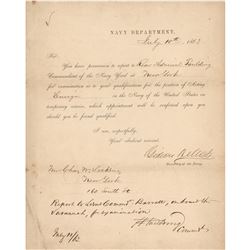 NAVY DEPARTMENT,
July 10th 1863
Sir:
You have permission to report to Rear Admiral Paulding
Commandant of the Navy Yard at New York
for examination as to your qualifications for the position of Acting
Ensign in the Navy of the United States on
temporary service, which appointment will be conferred upon you
should you be found qualified.
I am, respectfully,
Your obedient servant,
Gideon Welles
Secretary of the Navy.
Mr. Chas. W.
New York
160 South St
Report to Lieut Comdt. on board the
Savannah, for examination
Comdt
July 11/63